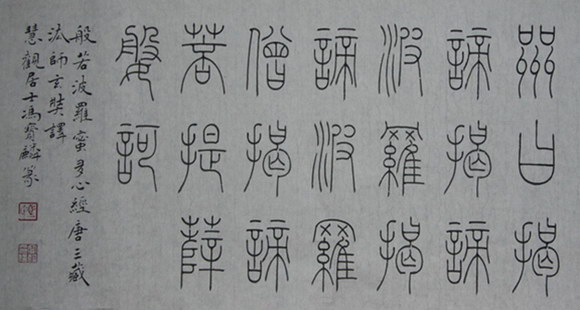 咒曰揭
諦揭諦
波羅揭
諦波羅
僧揭諦
菩提薩
婆訶
般若波羅蜜多心經唐三藏
法師玄奘譯
慧觀居士馮寶麟篆